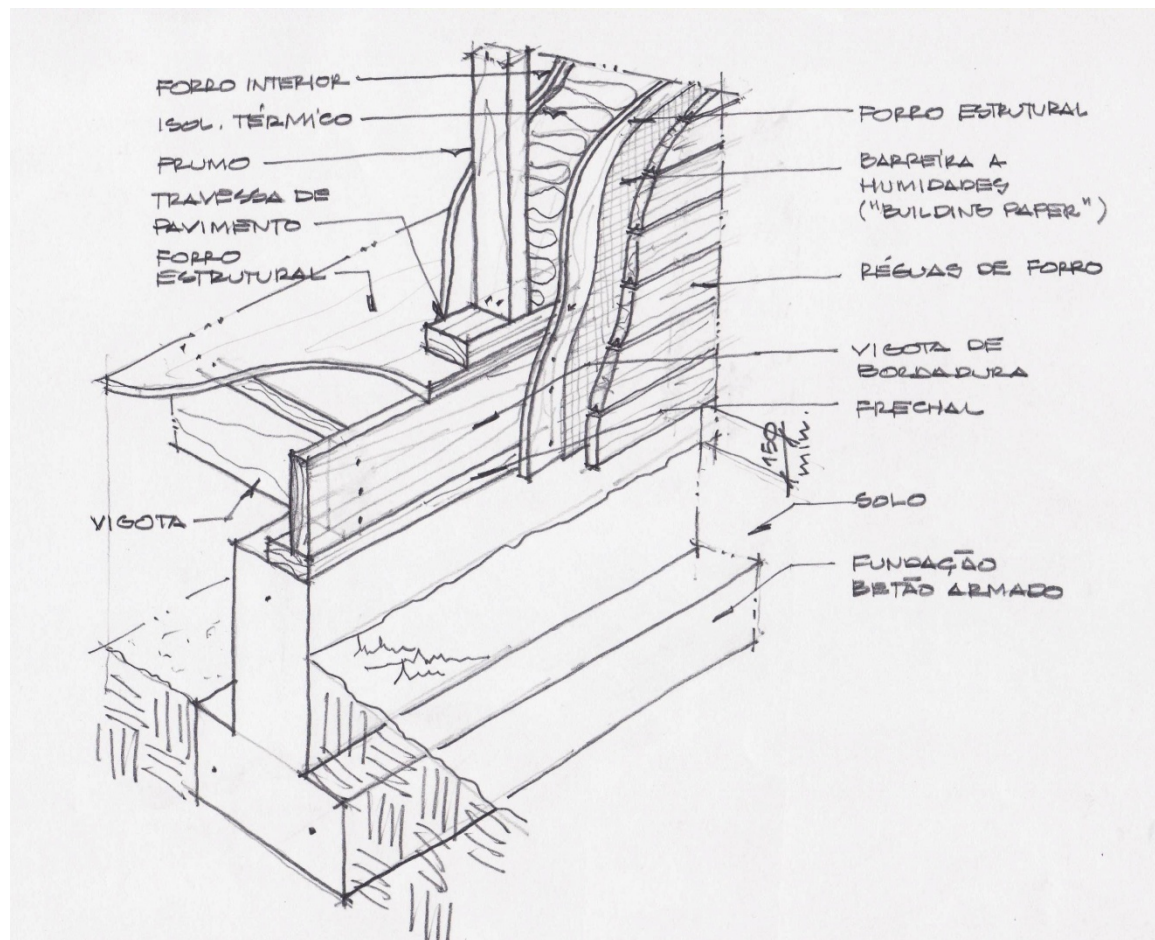 FORRO INTERIOR
ISOL. TÉRMICO
PRUMO
TRAVESSA DE
PAVIMENTO
FORRO
ESTRUTURAL
VIGOTA
FORRO ESTRUTURAL
BARREIRA A
HUMIDADES
("BUILDING PAPER")
RÉGUAS DE FORRO
VIGOTA DE
BORDADURA
FRECHAL
150
min.
SOLO
FUNDAÇÃO
BETÃO ARMADO